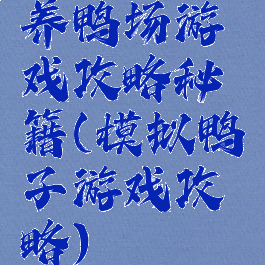 养鸭场游
戏攻略秘
籍(模拟鸭
子游戏攻
略)